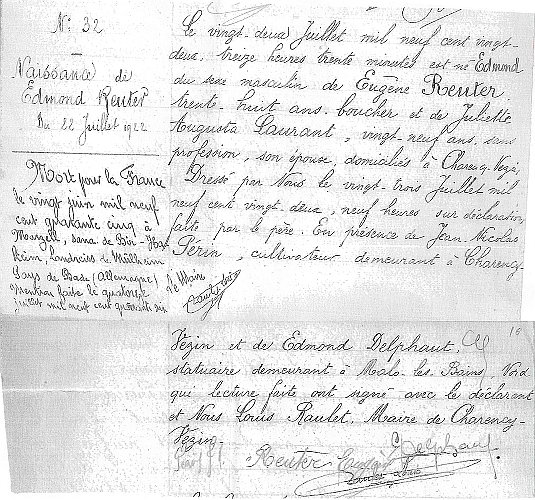 N° 32
Naissance de
Edmond Reuter
Du 22 Juillet 1922
Mort pour la France
le vingt juin mil neuf
cent quarante cinq à
sana de
landkreis de Müllheim
Pays de Bade (Allemagne)
Mention faite le quatorze
mil neuf cent quarante six
Le Maire
Le vingt-deux Juillet mil neuf cent vingt-
deux, treize heures trente minutes est né Edmond
du sexe masculin de Eugène Reuter,
trente huit ans, boucher et de Juliette
Augusta Laurant, vingt neuf ans, sans
profession, son épouse, domiciliés à Charency-Vezin,
Dressé par Nous le vingt-trois Juillet mil
neuf cent vingt-deux, neuf heures sur déclaration
faite par le père. En présence de Jean, Nicolas
Périn, cultivateur demeurant à Charency-
19
Vézin et de Edmond Delphaut,
statuaire demeurant à Malo-les-Bains, Nord
qui lecture faite ont signé avec le déclarant
et Nous Louis Raulet, Maire de Charency-
Vézin.
Delphaut
Reuter Eugène